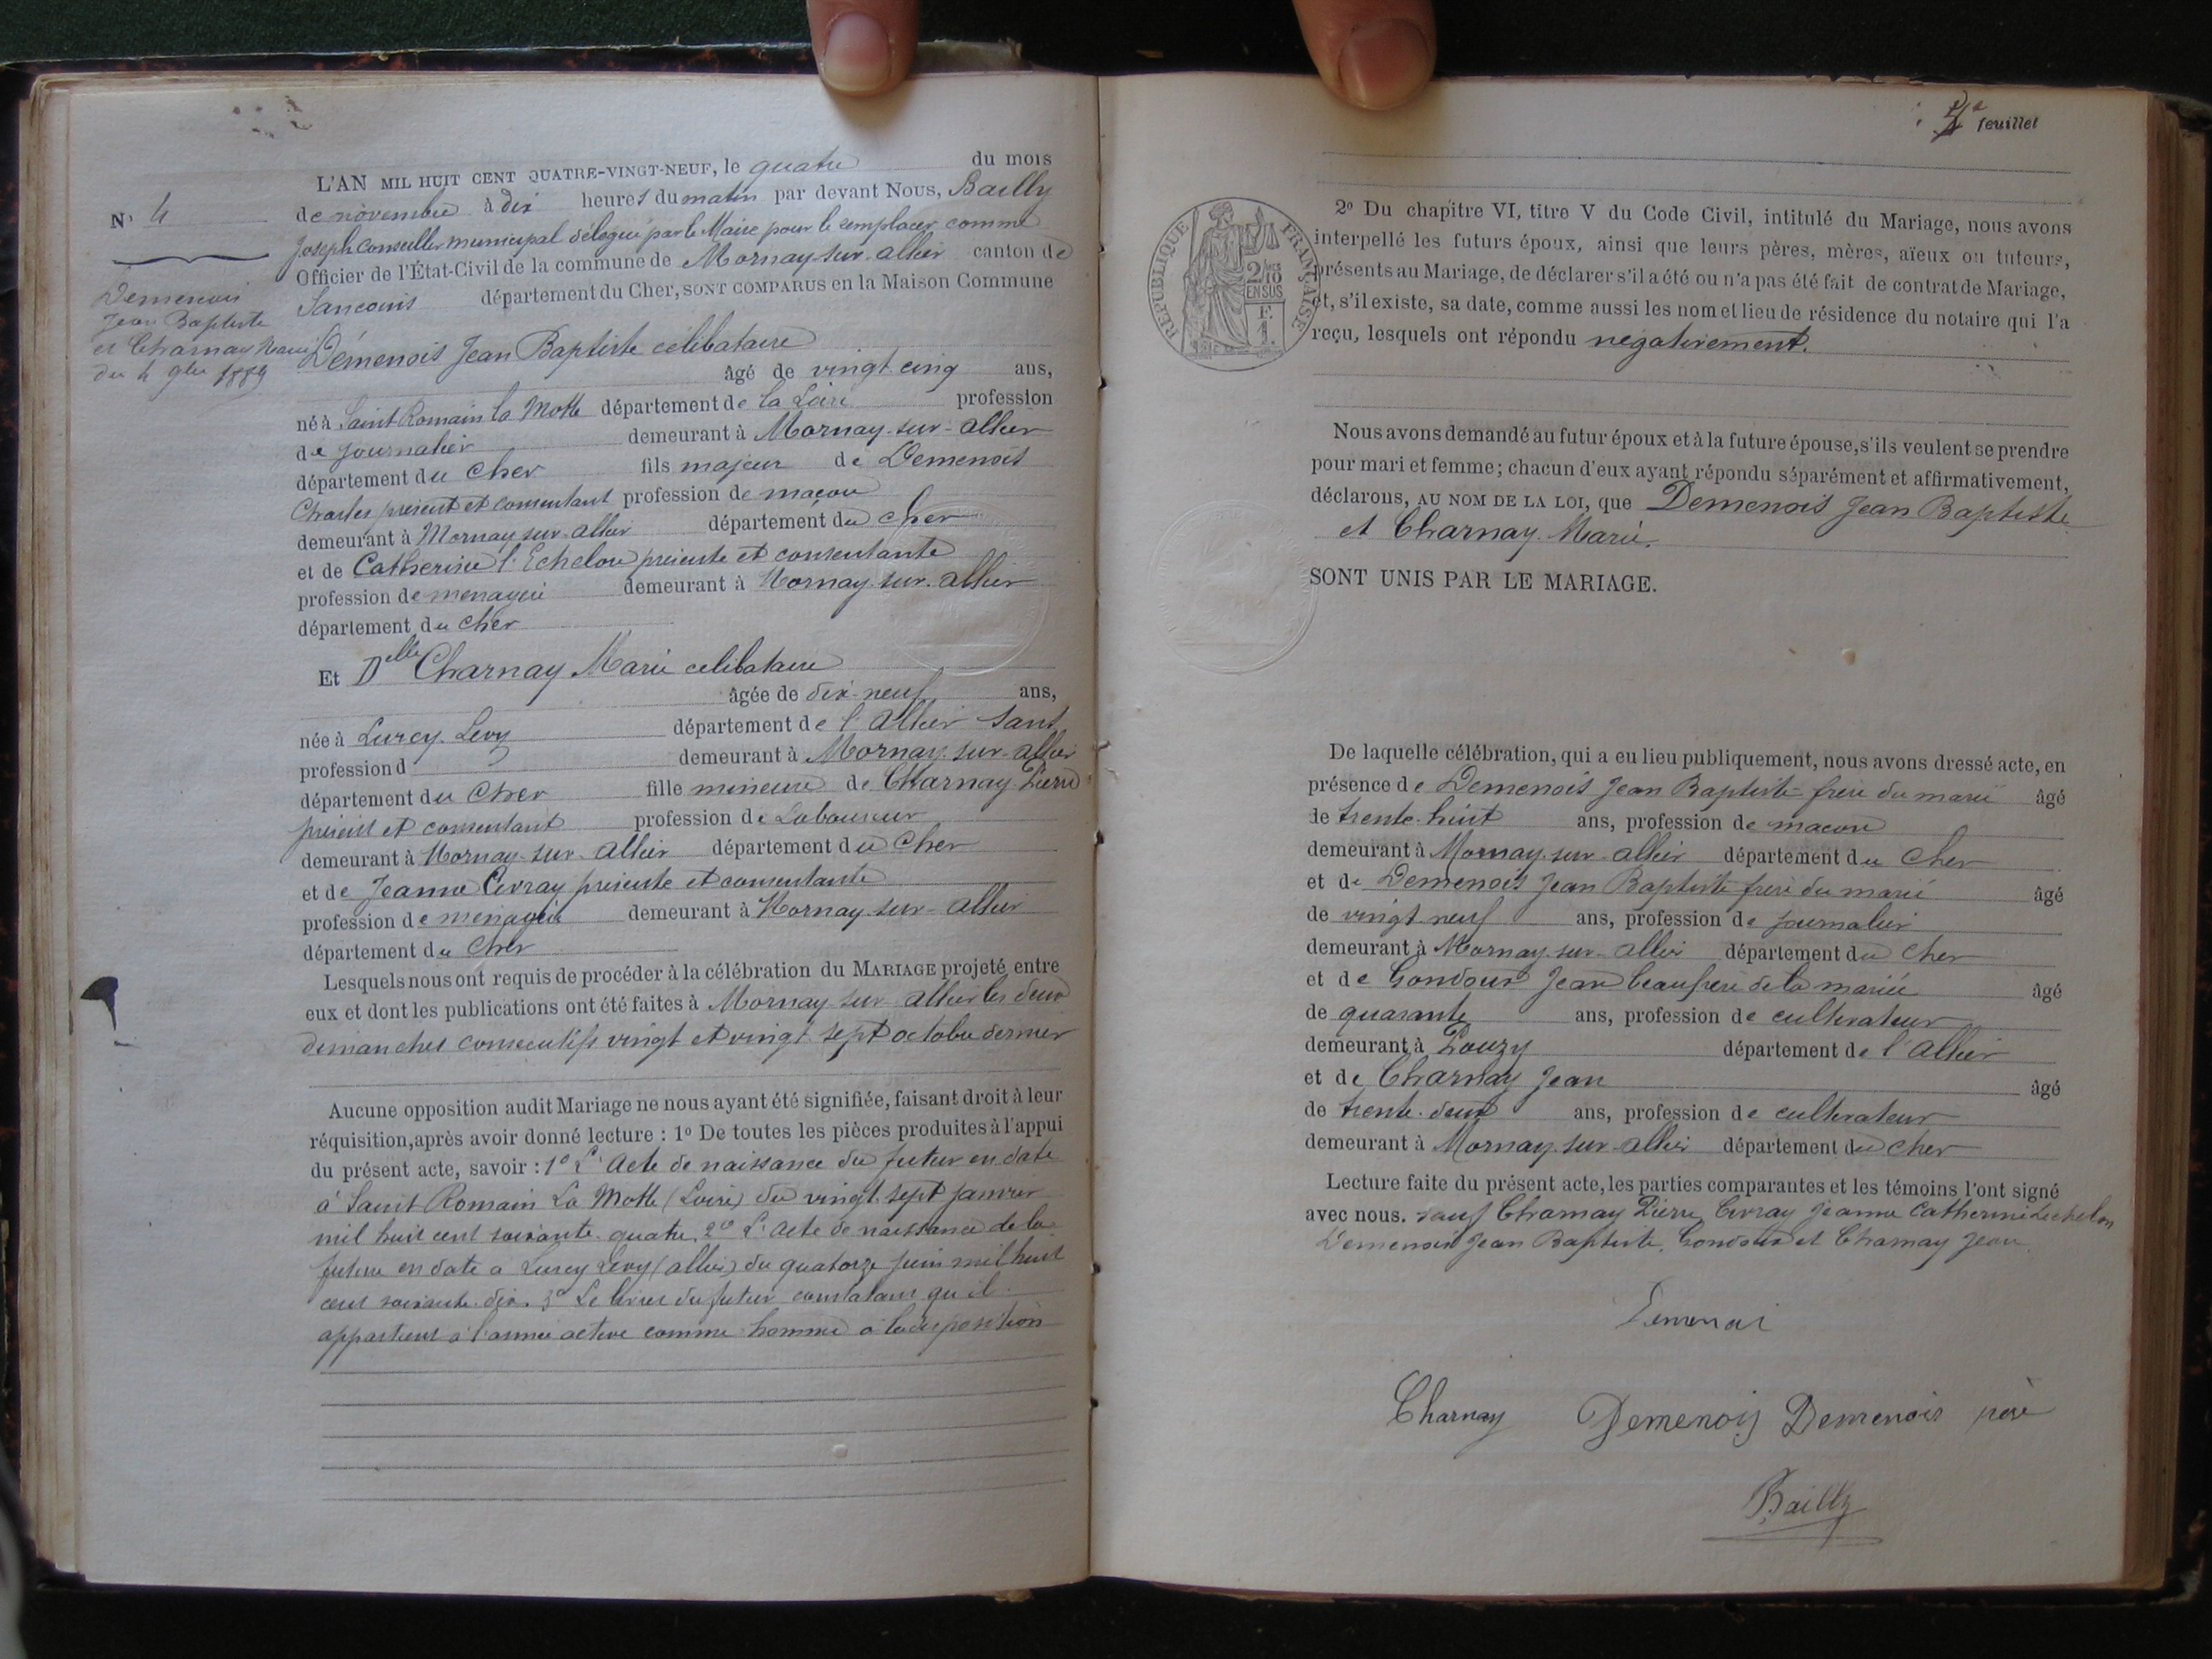 L'AN MIL HUIT CENT QUATRE-VINGT-NEUF, le quatre du mois
de novembre à dix heures du matin par devant Nous, Bailly
Joseph Conseiller municipal délégué par le Maire pour le remplacer comme
Officier de l'État-Civil de la commune de Mornay-sur-allier canton de
Sancoins département du Cher, SONT COMPARUS en la Maison Commune
N° 4
Demenois
Jean Baptiste
et Charnay Marie
du 4 9bre 1889
Démenois Jean Baptiste célibataire
âgé de vingt cinq ans,
né à Saint Romain la Motte département de la Loire profession
de journalier demeurant à Mornay-sur-allier
département du Cher fils majeur de Demenois
Charles présent et consentant profession de maçon
demeurant à Mornay-sur-allier département du Cher
et de Catherine l'Echelon présente et consentante
profession de menagère demeurant à Mornay-sur-allier
département du Cher
Et Delle Charnay Marie celibataire
âgée de dix-neuf ans,
née à Lurcy-Levy département de l'Allier sans
profession d demeurant à Mornay-sur-allier
département du Cher fille mineure de Charnay Pierre
présent et consentant profession de Laboureur
demeurant à Mornay-sur-Allier département du Cher
et de Jeanne Civray présente et consentante
profession de menagère demeurant à Mornay-sur-Allier
département du Cher
Lesquels nous ont requis de procéder à la célébration du MARIAGE projeté entre
eux et dont les publications ont été faites à Mornay-sur-Allier les deux
dimanches consecutifs vingt et vingt sept octobre dernier
Aucune opposition audit Mariage ne nous ayant été signifiée, faisant droit à leur
réquisition, après avoir donné lecture : 1º De toutes les pièces produites à l'appui
du présent acte, savoir : 1º L'Acte de naissance du futur en date
à Saint Romain La Motte (Loire) du vingt sept janvier
mil huit cent soixante quatre, 2º L'acte de naissance de la
future en date a Lurcy Levy (allier) du quatorze juin mil huit
cent soixante-dix. 3º Le livret du futur constatant qu'il
appartient à l'armée active comme homme à la disposition
4e feuillet
RÉPUBLIQUE FRANÇAISE
2/10
EN SUS
F.
1.
2º Du chapitre VI, titre V du Code Civil, intitulé du Mariage, nous avons
interpellé les futurs époux, ainsi que leurs pères, mères, aïeux ou tuteurs,
présents au Mariage, de déclarer s'il a été ou n'a pas été fait de contrat de Mariage,
et, s'il existe, sa date, comme aussi les nom et lieu de résidence du notaire qui l'a
reçu, lesquels ont répondu negativement.
Nous avons demandé au futur époux et à la future épouse, s'ils veulent se prendre
pour mari et femme ; chacun d'eux ayant répondu séparément et affirmativement,
déclarons, AU NOM DE LA LOI, que Demenois Jean Baptiste
et Charnay Marie.
SONT UNIS PAR LE MARIAGE.
De laquelle célébration, qui a eu lieu publiquement, nous avons dressé acte, en
présence de Demenois Jean Baptiste frère du marié âgé
de trente-huit ans, profession de macon
demeurant à Mornay-sur-allier département du Cher
et de Demenois Jean Baptiste frère du marié âgé
de vingt neuf ans, profession de journalier
demeurant à Mornay-sur-allier département du Cher
et de Gondoux Jean beaufrère de la mariée âgé
de quarante ans, profession de cultivateur
demeurant à Pouzy département de l'Allier
et de Charnay Jean âgé
de trente-deux ans, profession de cultivateur
demeurant à Mornay-sur-allier département du Cher
Lecture faite du présent acte, les parties comparantes et les témoins l'ont signé
avec nous. sauf Charnay Pierre, Civray Jeanne Catherine Lechelon
Demenois Jean Baptiste, Gondoux et Charnay Jean
Demenoi
Charnay Demenois Demenois père
Bailly